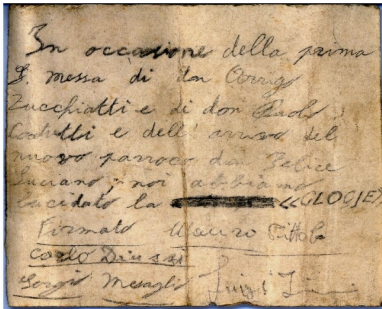 In occasione della prima
S. messa di don Arrigo
Zucchiatti e di don Paolo
e dell' arrivo del
nuovo parroco don Felice
Luciano, noi abbiamo
lucidato la «GLOCJE»
Firmato Mauro Pittolo
Carlo
Sergio Mesaglio Luigi